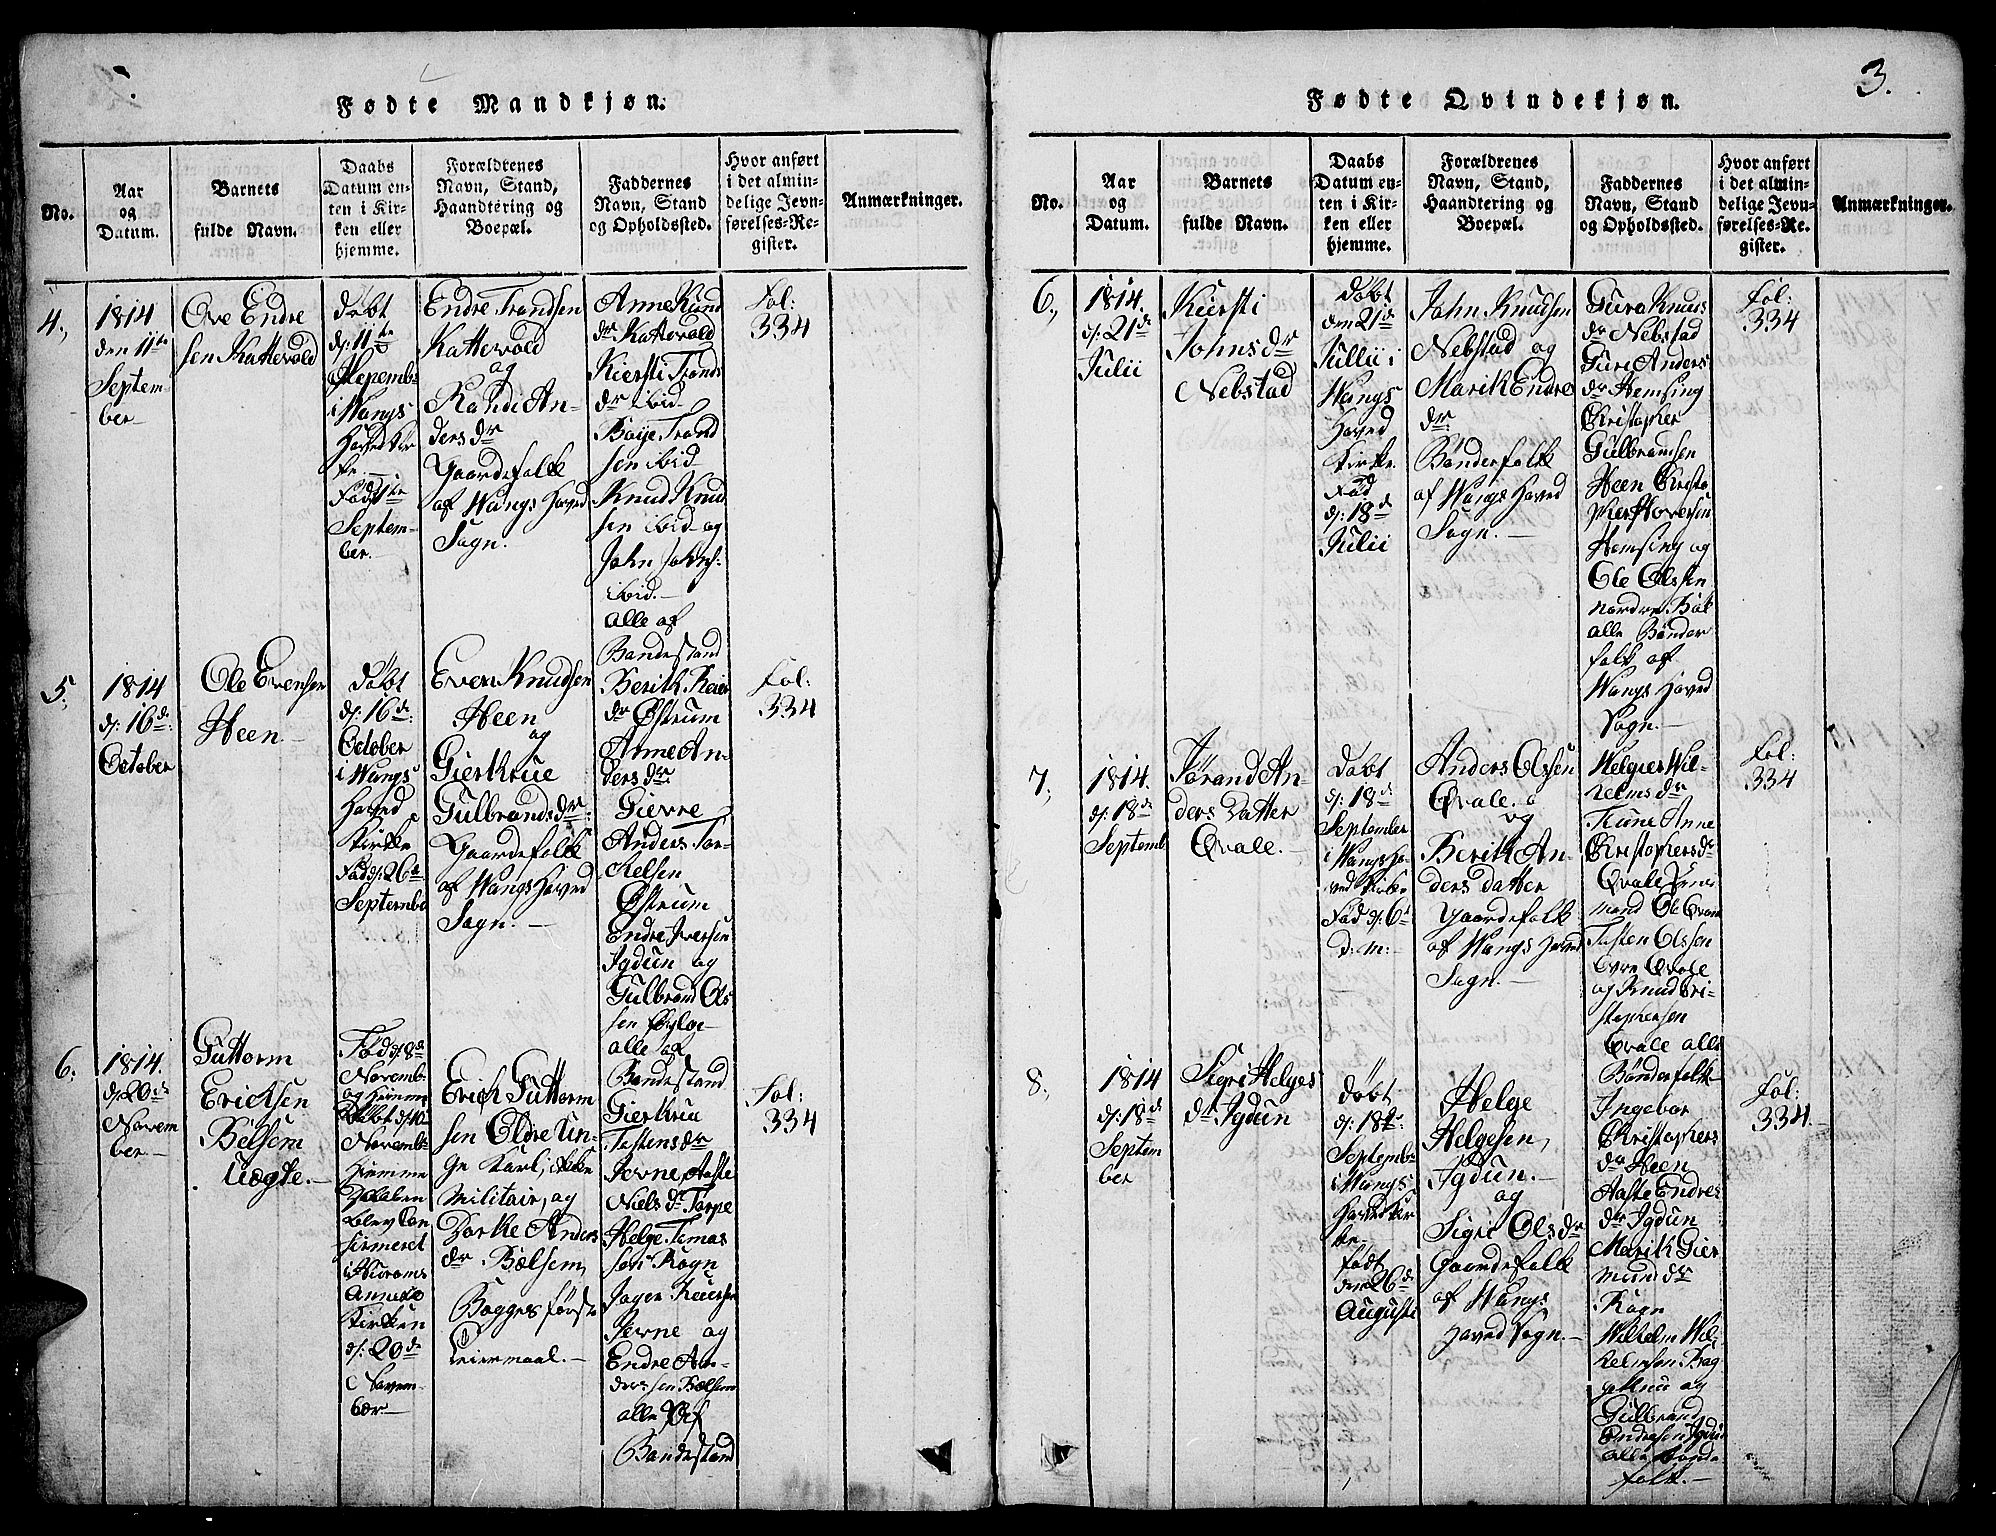 3.
Fødte Mandkjøn.
No.
Aar
og
Datum.
Barnets
fulde Navn.
Daabs
Datum en-
ten i Kir-
ken eller
hjemme.
Forældrenes
Navn, Stand,
Haandtering og
Boepæl.
Faddernes
Navn, Stand
og Opholdssted.
Hvor anført
i det almin-
delige Jevn-
førelses-Re-
gister.
Anmærkninger.
4.,
1814
den 11te
Septem-
ber
Ove Endre
sen Kattevold
døbt
d: 11te
i Wangs
Hoved Kir
ke.
Fød 1te
Septem-
ber.
Endre Trondsen
Kattevold
og
Randi An-
ders dr
Gaardefolk
af Wangs Hoved
Sogn.
Anne Knud
dr Kattevold
Kiersti Tronds
dr ibid
Boye Trond
sen ibid
Knud Knud
sen ibid og
John Johns
ibid.
alle af
Bondestand
Fol:
334
5.
1814
d: 16de
October
Ole Evensen
Heen
døbt
d: 16de
October
i Wangs
Hoved
Kirke
Fød d: 26de
September
Even Knudsen
Heen
og
Giertrue
Gulbrands dr
Gaardefolk
af Wangs Hoved
Sogn.
Berith
dr Østrum
Anne An-
ders dr
Gierre
Anders Tor-
kelsen
Østrum
Endre Iversen
Igdun og
Gulbrand Ols
sen
alle af
Bondestand
Fol:
334
6.
1814.
d: 20de
Novem
ber
Guttorm
Erichsen
Belsem
Uægte.
Fød d: 8de
Novemb:
og hjemme
døbt d: 10
Novemb:
hjemme
Daaben
blev con
firmeret
i
Annexe
Kirken
d: 20de
Novem-
ber
Erich Guttorm
sen Eldre un-
ge Karl, ikke
Militair, og
Dorthe Anders
dr Bælsem,
Begges første
Leiermaal.
Giertrue
Tostens dr
Jerne, Aaste
Niels dr Torpe
Helge Tomas
sen Rogn
Jerne og
Endre An-
dersen Bælsem
alle af
Bondestand
Fol:
334
Fødte Qvindekjøn.
No.
Aar
og
Datum.
Barnets
fulde Navn.
Daabs
Datum en-
ten i Kir-
ken eller
hjemme.
Forældrenes
Navn, Stand,
Haandtering og
Boepæl.
Faddernes
Navn, Stand
og Opholdssted.
Hvor anført
i det almin-
delige Jevn-
førelses-Re-
gister.
Anmærkninger.
6.,
1814.
d: 21de
Julii
Kiersti
Johns dr
Nebstad
Døbt
den 21de
Julii i
Wangs
Hoved
Kirke.
Fød
d: 18de
Julii
John Knudsen
Nebstad og
Marith Endre
dr
Bønderfolk
af Wangs Hoved
Sogn.
Guro Knuds
dr Nebstad
Guri Anders
dr Hemsing
Christopher
Gulbrandsen
Heen Christo
Hemsing og
Ole Olsen
nordre
alle Bønder
folk af
Wangs Hoved
Sogn.
Fol:
334
7.,
1814.
d: 18de
Septemb.
Jørand An-
ders Datter
Qvale.
Døbt
d: 18de
September
i Wangs Ho-
ved Kirke
Fød d: 6te
d: m:
Anders Olssen
Qvale.
og
Berith An-
ders datter
Gaardefolk
af Wangs Hoved
Sogn.
Wil-
helms dr
Anne
Christophers dr
Qvale
mand Ole
Tosten Olssen
Øvre Qvale
og Knud Cri-
stophersen
Qvale alle
Bønderfolk
Fol:
334
8.,
1814
d: 18de
Septem
ber
Sigri Helges
dr Igdun
Døbt
d: 18te
Septemb:
i Wangs
Hoved Kir
ke
født
den 26de
Augusti
Helge
Helgesen,
Igdun.
og
Sigri Ols dr
Gaardefolk
af Wangs
Hoved Sogn.
Ingebor
Christophers
dr Heen
Aaste Endres
dr Igdun
Marith Gier
mund dr
Rogn
Wilhelm Wil-
helmsen
og
Gulbrand
Endresen Igdun
alle Bonde
folk.
Fol:
334.